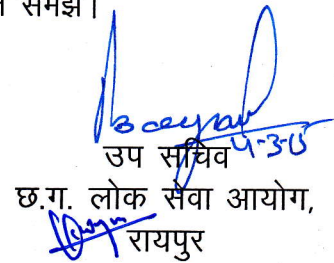 समझे।
4-3-15
उप सचिव
छ.ग. लोक सेवा आयोग,
रायपुर